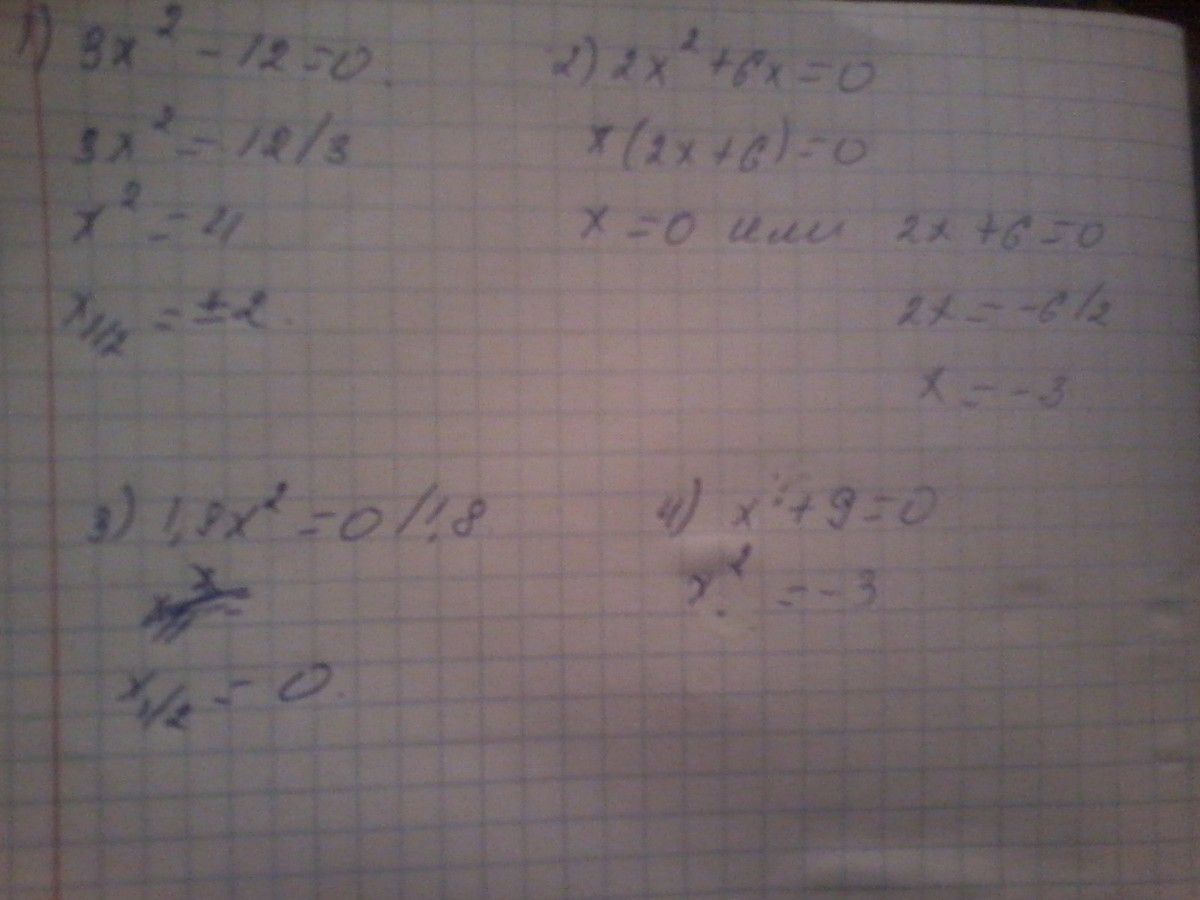 1) 3x² - 12 = 0.
3x² = 12 / 3
x² = 4
x₁/₂ = ±2.
2) 2x² + 6x = 0
x(2x + 6) = 0
x = 0 или 2x + 6 = 0
2x = -6 / 2
x = -3
3) 1,8x² = 0 / 1,8
x₁/₂ = 0.
4) x² + 9 = 0
x² = -3